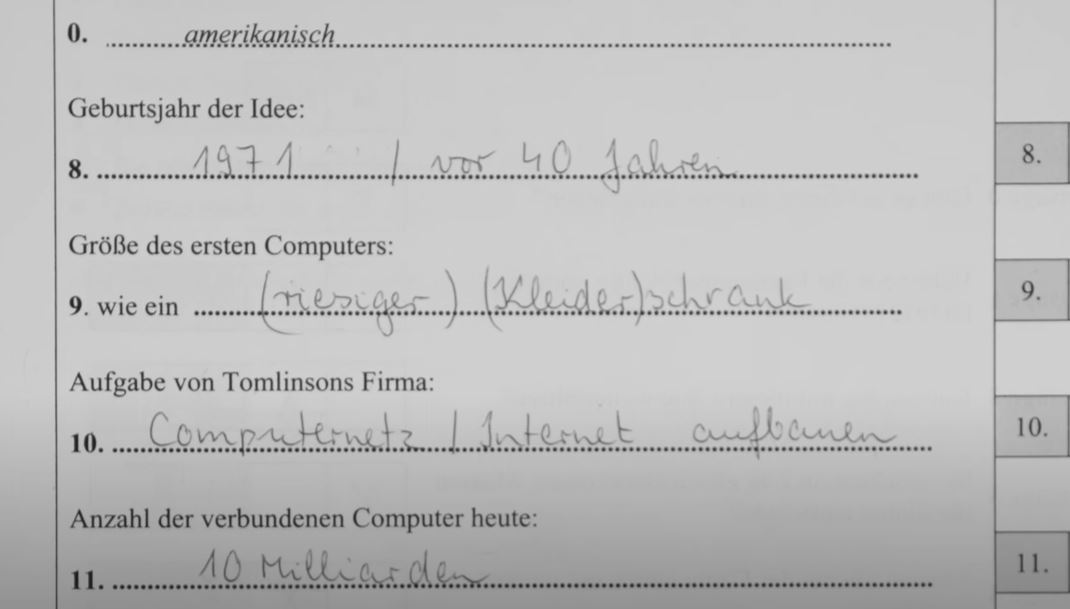 0. amerikanisch
Geburtsjahr der Idee:
8. 1971 / vor 40 Jahren 8.
Größe des ersten Computers:
9. wie ein (riesiger) (Kleider)schrank 9.
Aufgabe von Tomlinsons Firma:
10. Computernetz / Internet aufbauen 10.
Anzahl der verbundenen Computer heute:
11. 10 Milliarden 11.